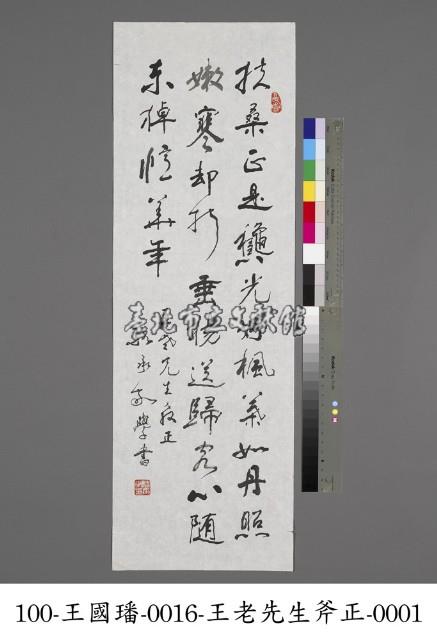 扶桑正是龝光好楓葉如丹照
嫩寒却折垂楊送歸客心隨
東棹憶華年
先生教正
學書
臺北市立文獻館
100-王國璠-0016-王老先生斧正-0001